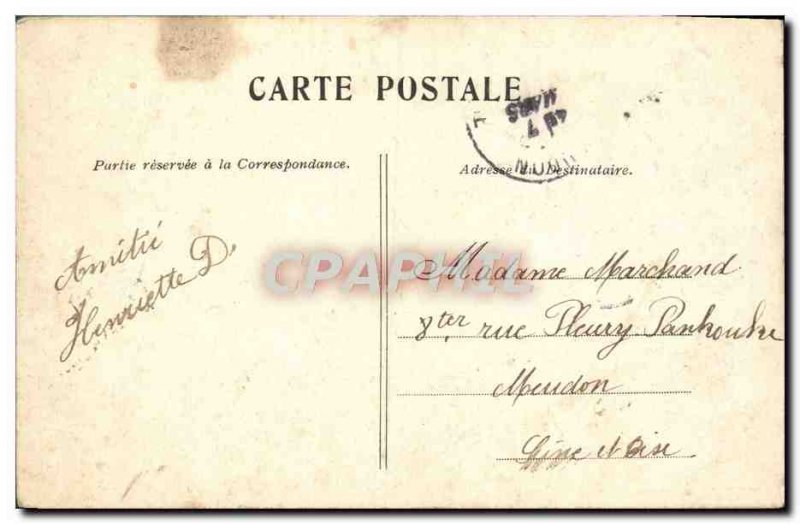 CARTE POSTALE
Partie réservée à la Correspondance.
Adresse du Destinataire.
Amitié
Henriette D.
Madame Marchand
8ter rue Fleury Pankouke
Meudon
Seine et Oise
CPAPHIL
MARS